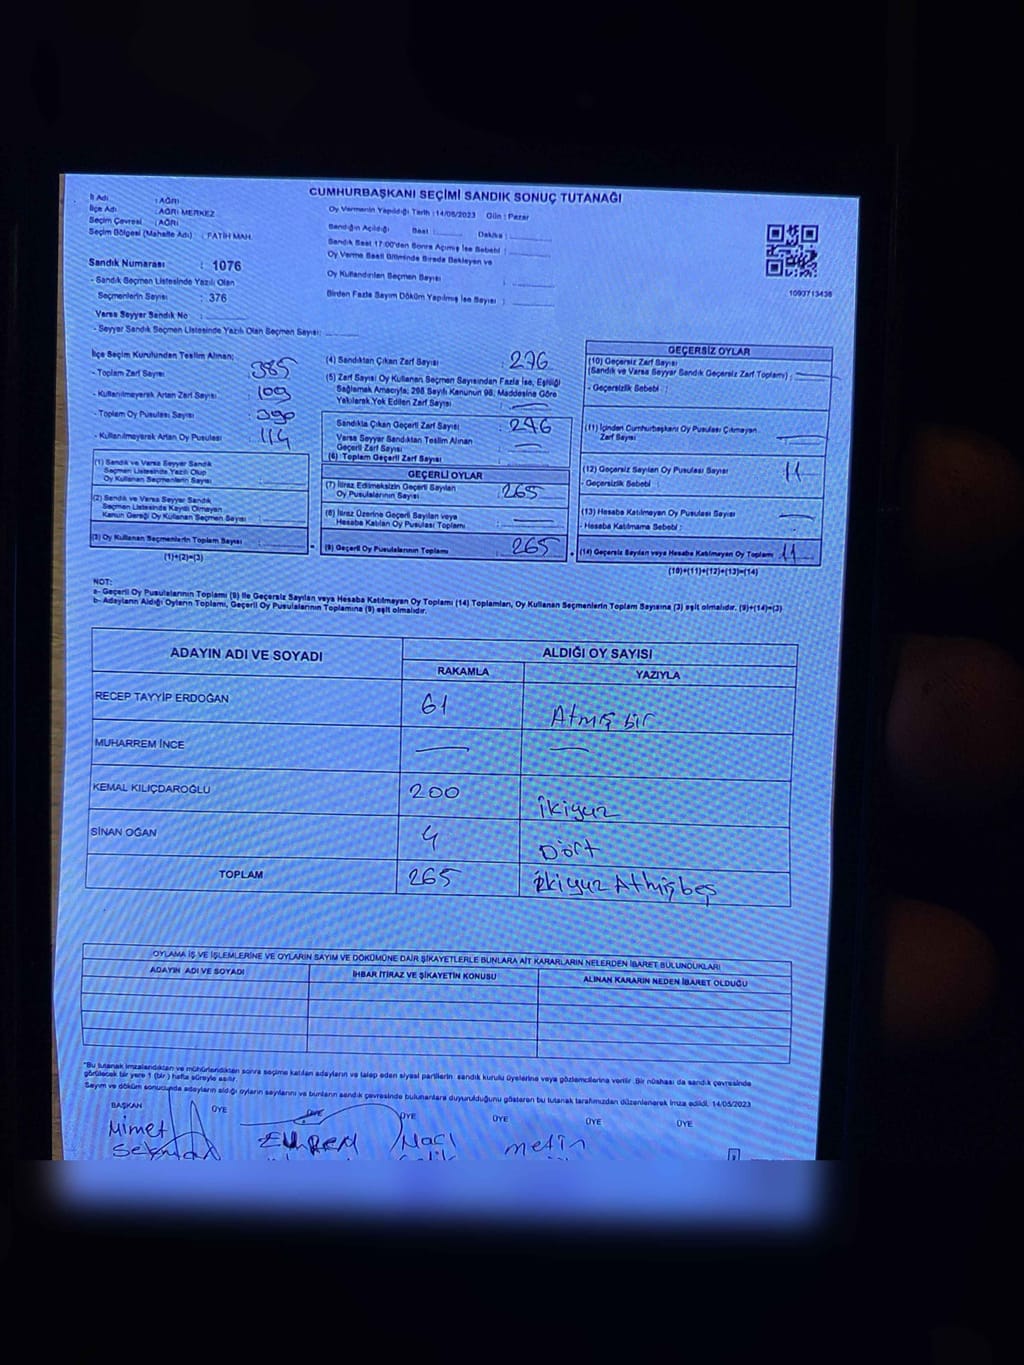 CUMHURBAŞKANI SEÇİMİ SANDIK SONUÇ TUTANAĞI
İl Adı : AĞRI
İlçe Adı : AĞRI MERKEZ
Seçim Çevresi : AĞRI
Seçim Bölgesi (Mahalle Adı) : FATİH MAH.
Oy Vermenin Yapıldığı Tarih : 14/05/2023 Gün : Pazar
Sandığın Açıldığı Saat : Dakika :
Sandık Saat 17:00'den Sonra Açımış İse Sebebi :
Oy Verme Saati Bitiminde Sırada Bekleyen ve
Oy Kullandırılan Seçmen Sayısı :
Birden Fazla Sayım Döküm Yapılmış İse Sayısı :
1093713436
Sandık Numarası : 1076
- Sandık Seçmen Listesinde Yazılı Olan
Seçmenlerin Sayısı : 376
Varsa Seyyar Sandık No :
- Seyyar Sandık Seçmen Listesinde Yazılı Olan Seçmen Sayısı:
İlçe Seçim Kurulundan Teslim Alınan:
- Toplam Zarf Sayısı : 385
- Kullanılmayarak Artan Zarf Sayısı : 109
- Toplam Oy Pusulası Sayısı : 390
- Kullanılmayarak Artan Oy Pusulası : 114
(1) Sandık ve Varsa Seyyar Sandık
Seçmen Listesinde Yazılı Olup
Oy Kullanan Seçmenlerin Sayısı :
(2) Sandık ve Varsa Seyyar Sandık
Seçmen Listesinde Kayıtlı Olmayan
Kanun Gereği Oy Kullanan Seçmen Sayısı :
(3) Oy Kullanan Seçmenlerin Toplam Sayısı :
(1)+(2)=(3)
(4) Sandıktan Çıkan Zarf Sayısı : 276
(5) Zarf Sayısı Oy Kullanan Seçmen Sayısından Fazla İse, Eşitliği
Sağlamak Amacıyla, 298 Sayılı Kanunun 98. Maddesine Göre
Yakılarak Yok Edilen Zarf Sayısı :
Sandıkta Çıkan Geçerli Zarf Sayısı : 276
Varsa Seyyar Sandıktan Teslim Alınan
Geçerli Zarf Sayısı :
(6) Toplam Geçerli Zarf Sayısı :
GEÇERLİ OYLAR
(7) İtiraz Edilmeksizin Geçerli Sayılan
Oy Pusulalarının Sayısı : 265
(8) İtiraz Üzerine Geçerli Sayılan veya
Hesaba Katılan Oy Pusulası Toplamı :
(9) Geçerli Oy Pusulalarının Toplamı : 265
GEÇERSİZ OYLAR
(10) Geçersiz Zarf Sayısı
(Sandık ve Varsa Seyyar Sandık Geçersiz Zarf Toplamı) :
- Geçersizlik Sebebi :
(11) İçinden Cumhurbaşkanı Oy Pusulası Çıkmayan
Zarf Sayısı
(12) Geçersiz Sayılan Oy Pusulası Sayısı : 11
- Geçersizlik Sebebi :
(13) Hesaba Katılmayan Oy Pusulası Sayısı :
- Hesaba Katılmama Sebebi :
(14) Geçersiz Sayılan veya Hesaba Katılmayan Oy Toplamı : 11
(10)+(11)+(12)+(13)=(14)
NOT:
a- Geçerli Oy Pusulalarının Toplamı (9) ile Geçersiz Sayılan veya Hesaba Katılmayan Oy Toplamı (14) Toplamları, Oy Kullanan Seçmenlerin Toplam Sayısına (3) eşit olmalıdır. (9)+(14)=(3)
b- Adayların Aldığı Oyların Toplamı, Geçerli Oy Pusulalarının Toplamına (9) eşit olmalıdır.
ADAYIN ADI VE SOYADI ALDIĞI OY SAYISI
RAKAMLA YAZIYLA
RECEP TAYYİP ERDOĞAN 61 Atmış bir
MUHARREM İNCE
KEMAL KILIÇDAROĞLU 200 İkiyüz
SİNAN OĞAN 4 Dört
TOPLAM 265 İkiyuz Athışbeş
OYLAMA İŞ VE İŞLEMLERİNE VE OYLARIN SAYIM VE DÖKÜMÜNE DAİR ŞİKAYETLERLE BUNLARA AİT KARARLARIN NELERDEN İBARET BULUNDUKLARI
ADAYIN ADI VE SOYADI İHBAR İTİRAZ VE ŞİKAYETİN KONUSU ALINAN KARARIN NEDEN İBARET OLDUĞU
*Bu tutanak imzalandıktan ve mühürlendikten sonra seçime katılan adayların ve talep eden siyasi partilerin sandık kurulu üyelerine veya gözlemcilerine verilir. Bir nüshası da sandık çevresinde
görülecek bir yere 1 (bir) hafta süreyle asılır.
Sayım ve döküm sonucunda adayların aldığı oyların sayılarını ve bunların sandık çevresinde bulunanlara duyurulduğunu gösteren bu tutanak tarafımızdan düzenlenerek imza edildi. 14/05/2023
BAŞKAN ÜYE ÜYE ÜYE ÜYE ÜYE ÜYE
Nimet Naci metin